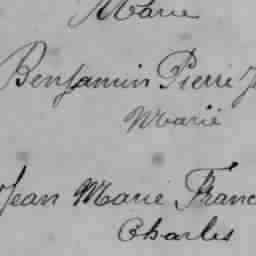 Marie
Benjamin Pierre J
Marie
Jean Marie Franc
Charles